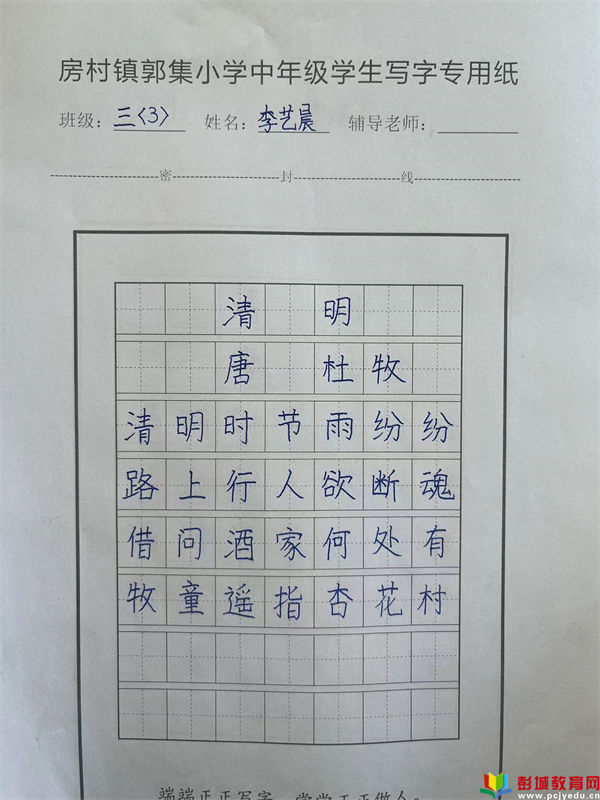 房村镇郭集小学中年级学生写字专用纸
班级：三〈3〉 姓名：李艺晨 辅导老师：
密 封 线
清 明
唐 杜牧
清明时节雨纷纷
路上行人欲断魂
借问酒家何处有
牧童遥指杏花村
端端正正写字，堂堂正正做人。
彭城教育网
www.pcjyedu.cn